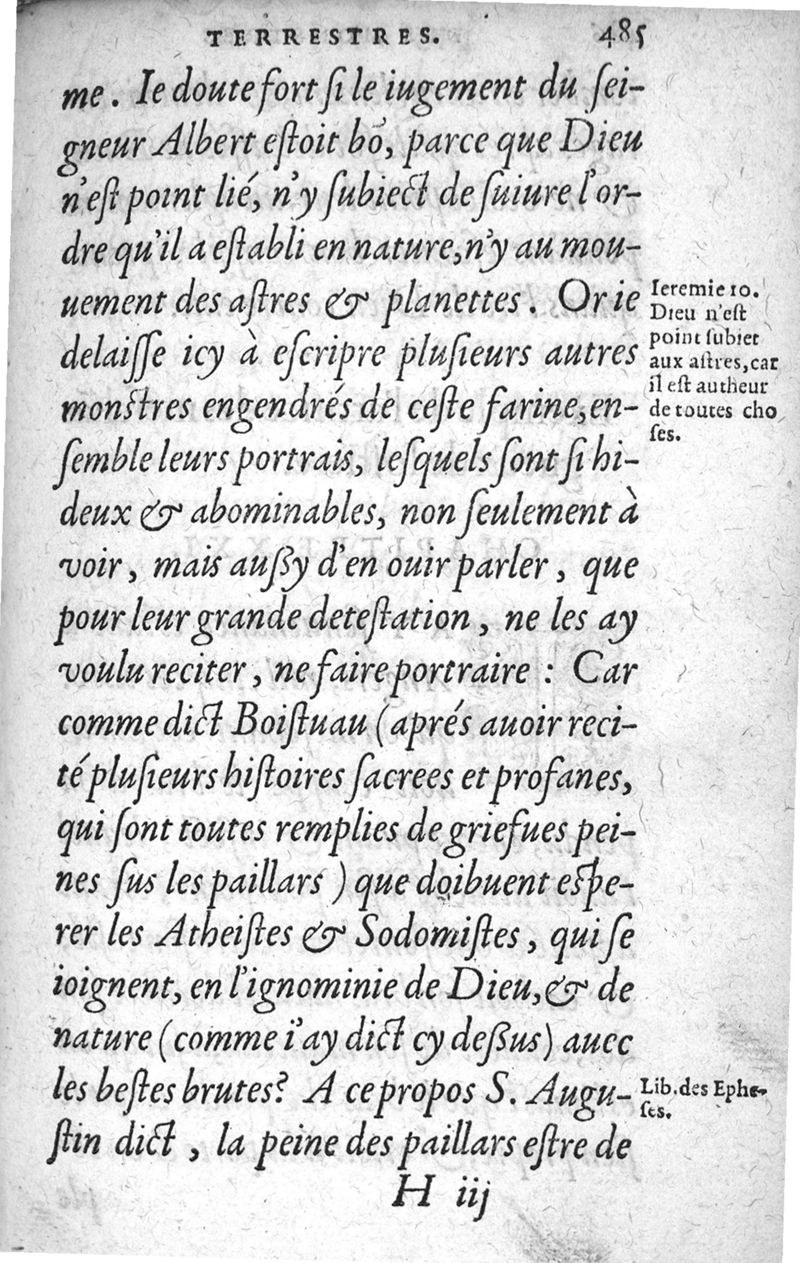 TERRESTRES. 485
me. Ie doute fort ſi le iugement du ſei-
gneur Albert eſtoit bõ, parce que Dieu
n'eſt point lié, n'y ſubiect de ſuiure l'or-
dre qu'il a eſtabli en nature, n'y au mou-
uement des aſtres & planettes. Or ie
delaiſſe icy à eſcripre pluſieurs autres
monſtres engendrés de ceſte farine, en-
ſemble leurs portrais, leſquels ſont ſi hi-
deux & abominables, non ſeulement à
voir, mais auſſy d'en ouir parler, que
pour leur grande deteſtation, ne les ay
voulu reciter, ne faire portraire : Car
comme dict Boiſtuau (aprés auoir reci-
té pluſieurs hiſtoires ſacrees et profanes,
qui ſont toutes remplies de griefues pei-
nes ſus les paillars) que doibuent eſpe-
rer les Atheiſtes & Sodomiſtes, qui ſe
ioignent, en l'ignominie de Dieu, & de
nature (comme i'ay dict cy deſſus) auec
les beſtes brutes? A ce propos S. Augu-
ſtin dict, la peine des paillars eſtre de
H iij
Ieremie 10.
Dieu n'eſt
point ſubiet
aux aſtres, car
il eſt autheur
de toutes cho
ſes.
Lib. des Ephe-
ſes.